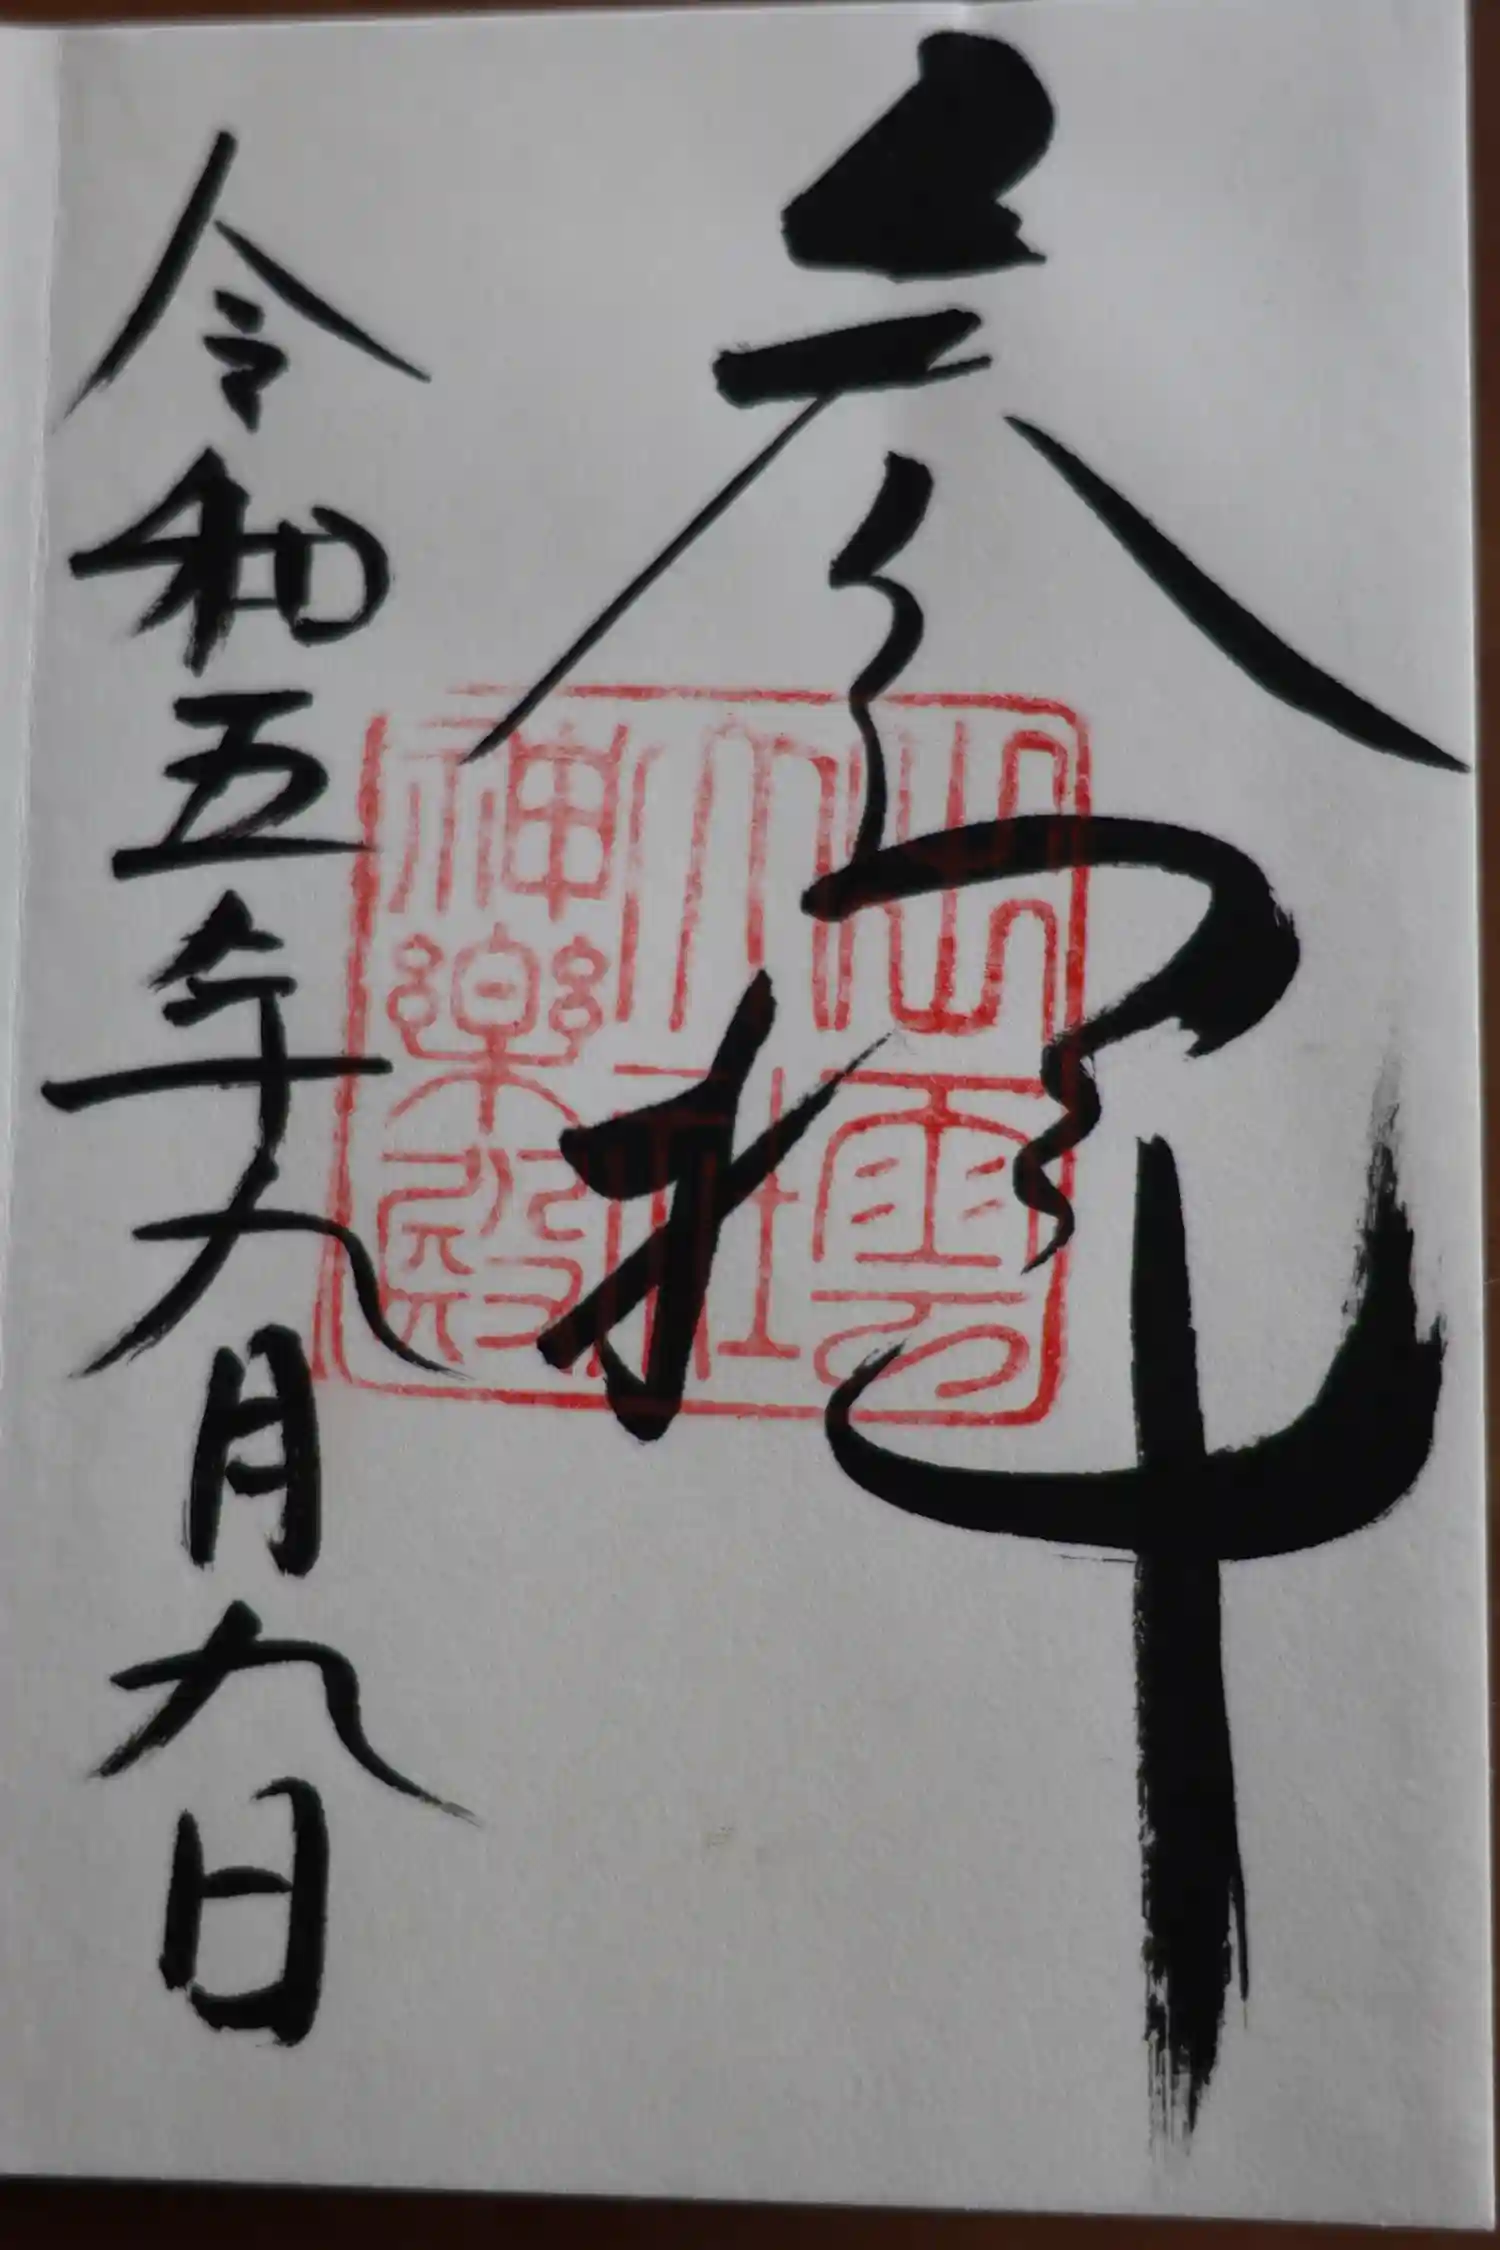 参拝
出雲
大社
神樂殿
令和五年九月九日